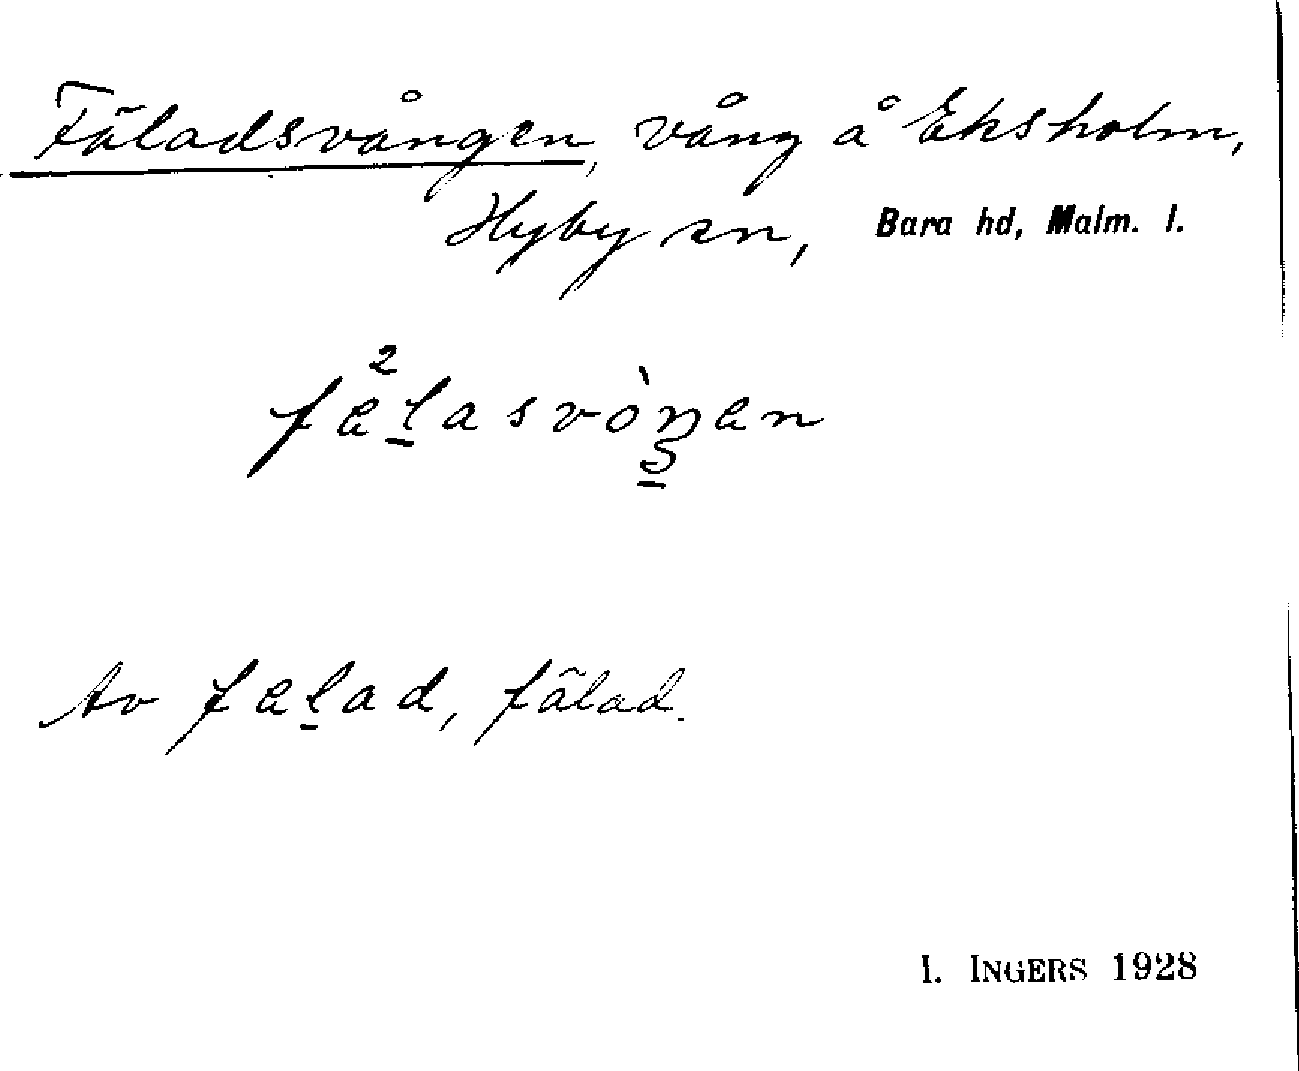 Fäladsvången, vång å Eksholm,
Hyby sn, Bara hd, Malm. l.
fälasvòŋen
Av fälad, fälad.
I. INGERS 1928